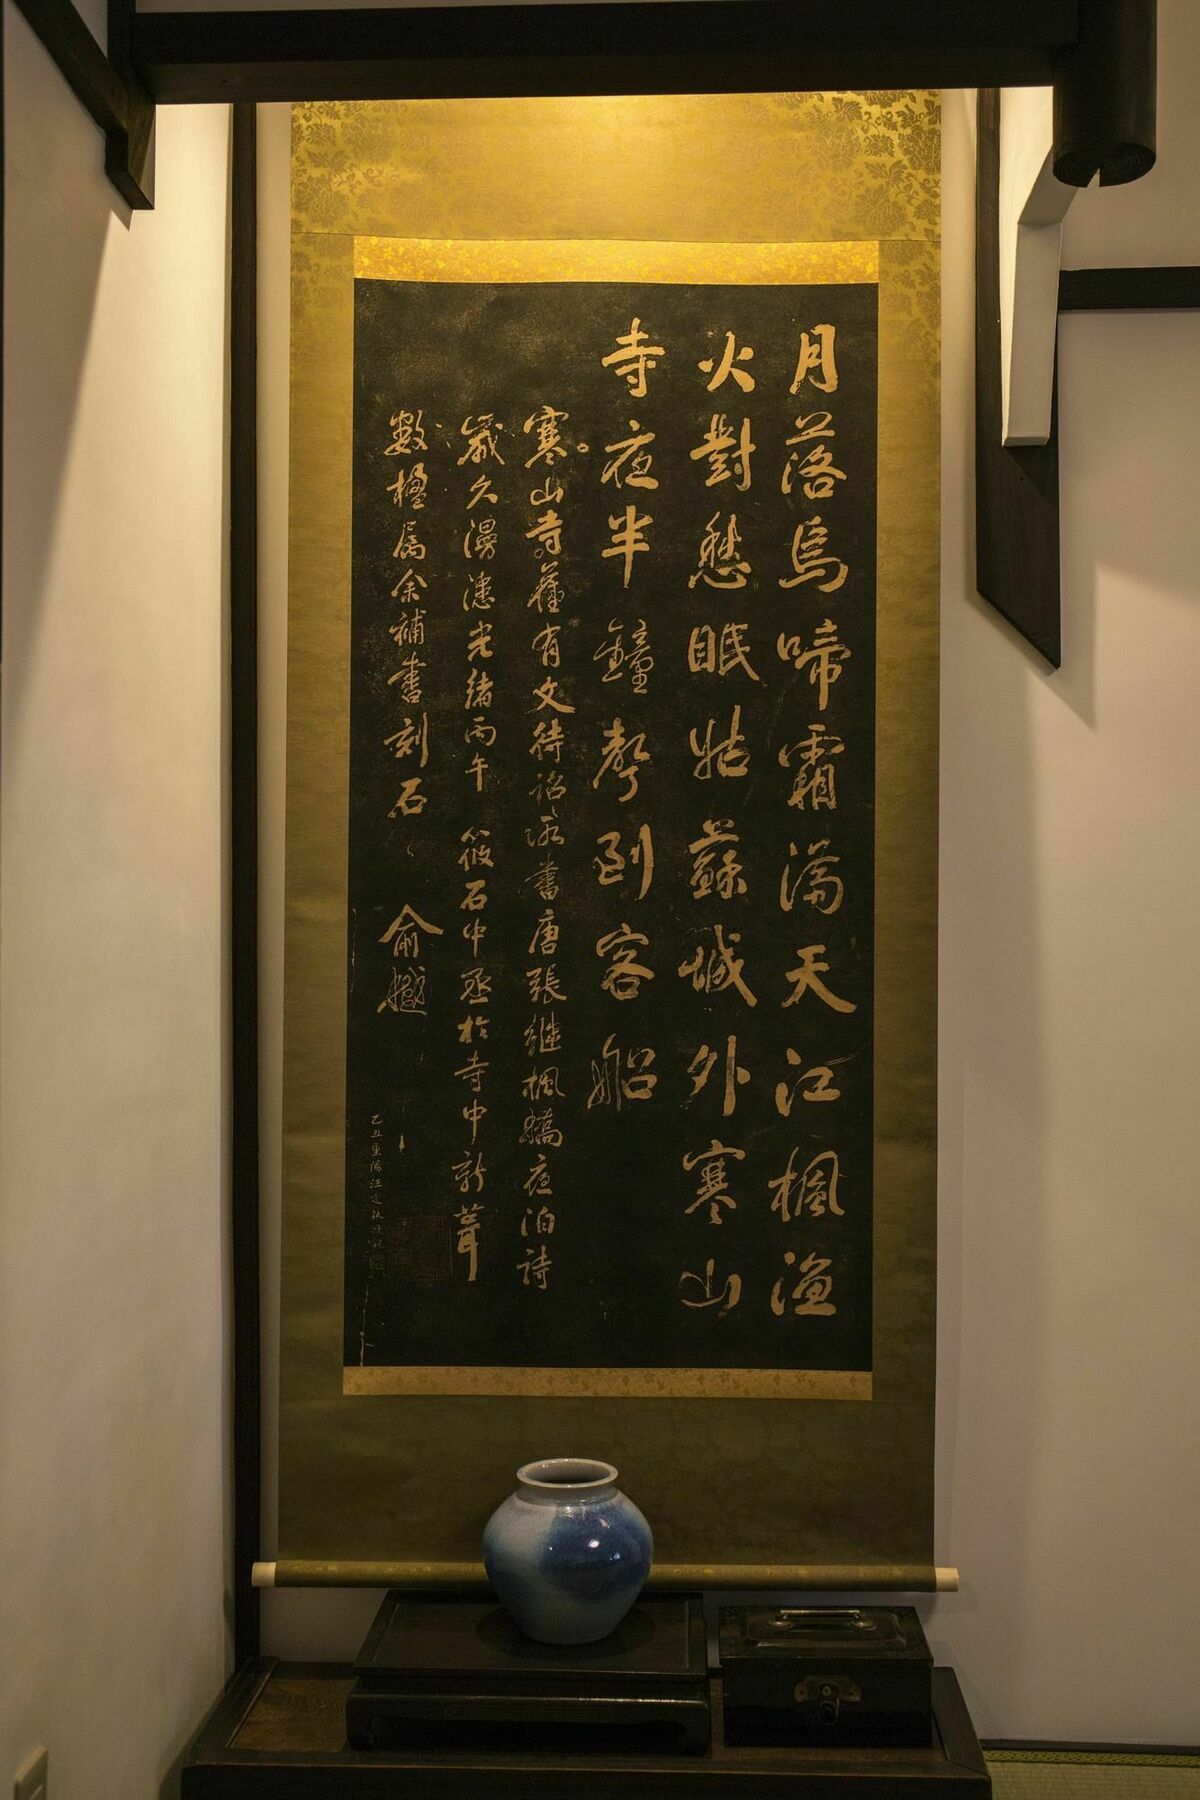 月落烏啼霜滿天江楓漁
火對愁眠姑蘇城外寒山
寺夜半鐘聲到客船
寒山寺舊有文待詔所書唐張繼楓橋夜泊詩
歲久漫漶光緒丙午筱石中丞於寺中新葺
數楹屬余補書刻石
俞樾
乙丑重陽汪定執